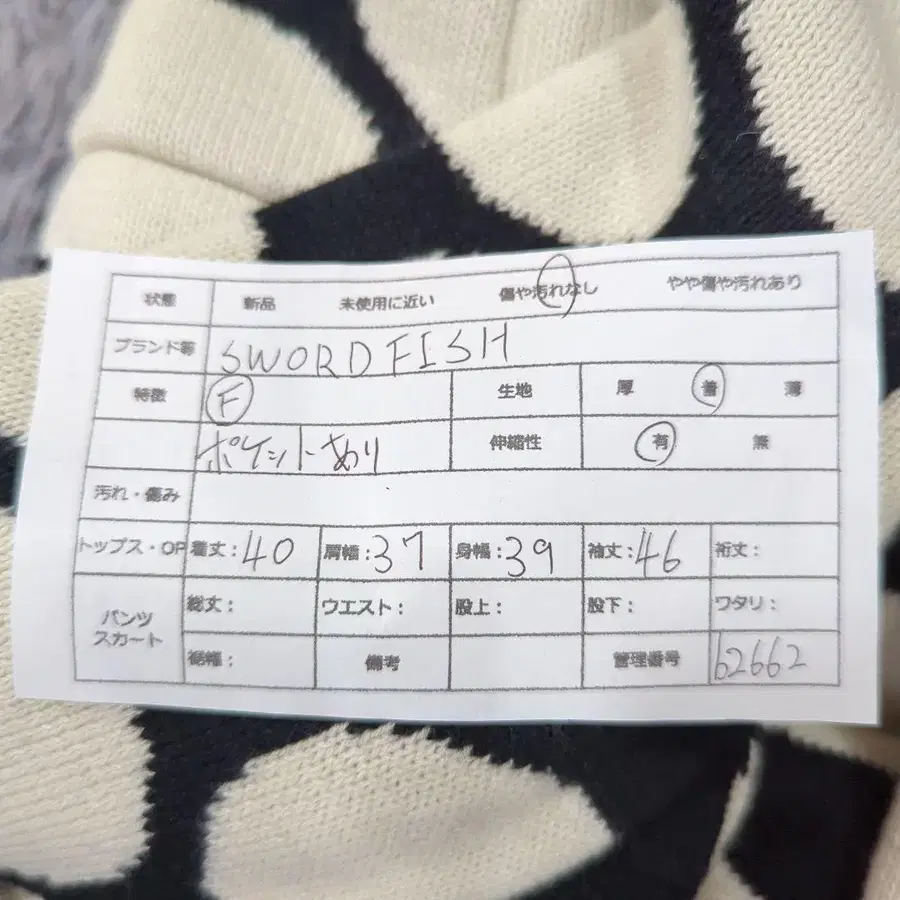 状態 新品 未使用に近い 傷や汚れなし やや傷や汚れあり
ブランド等 SWORD FISH
特徴 F 生地 厚 普 薄
ポケットあり 伸縮性 有 無
汚れ・傷み
トップス・OP 着丈:40 肩幅:37 身幅:39 袖丈:46 裄丈:
パンツ スカート 総丈: ウエスト: 股上: 股下: ワタリ:
裾幅: 備考 管理番号 62662